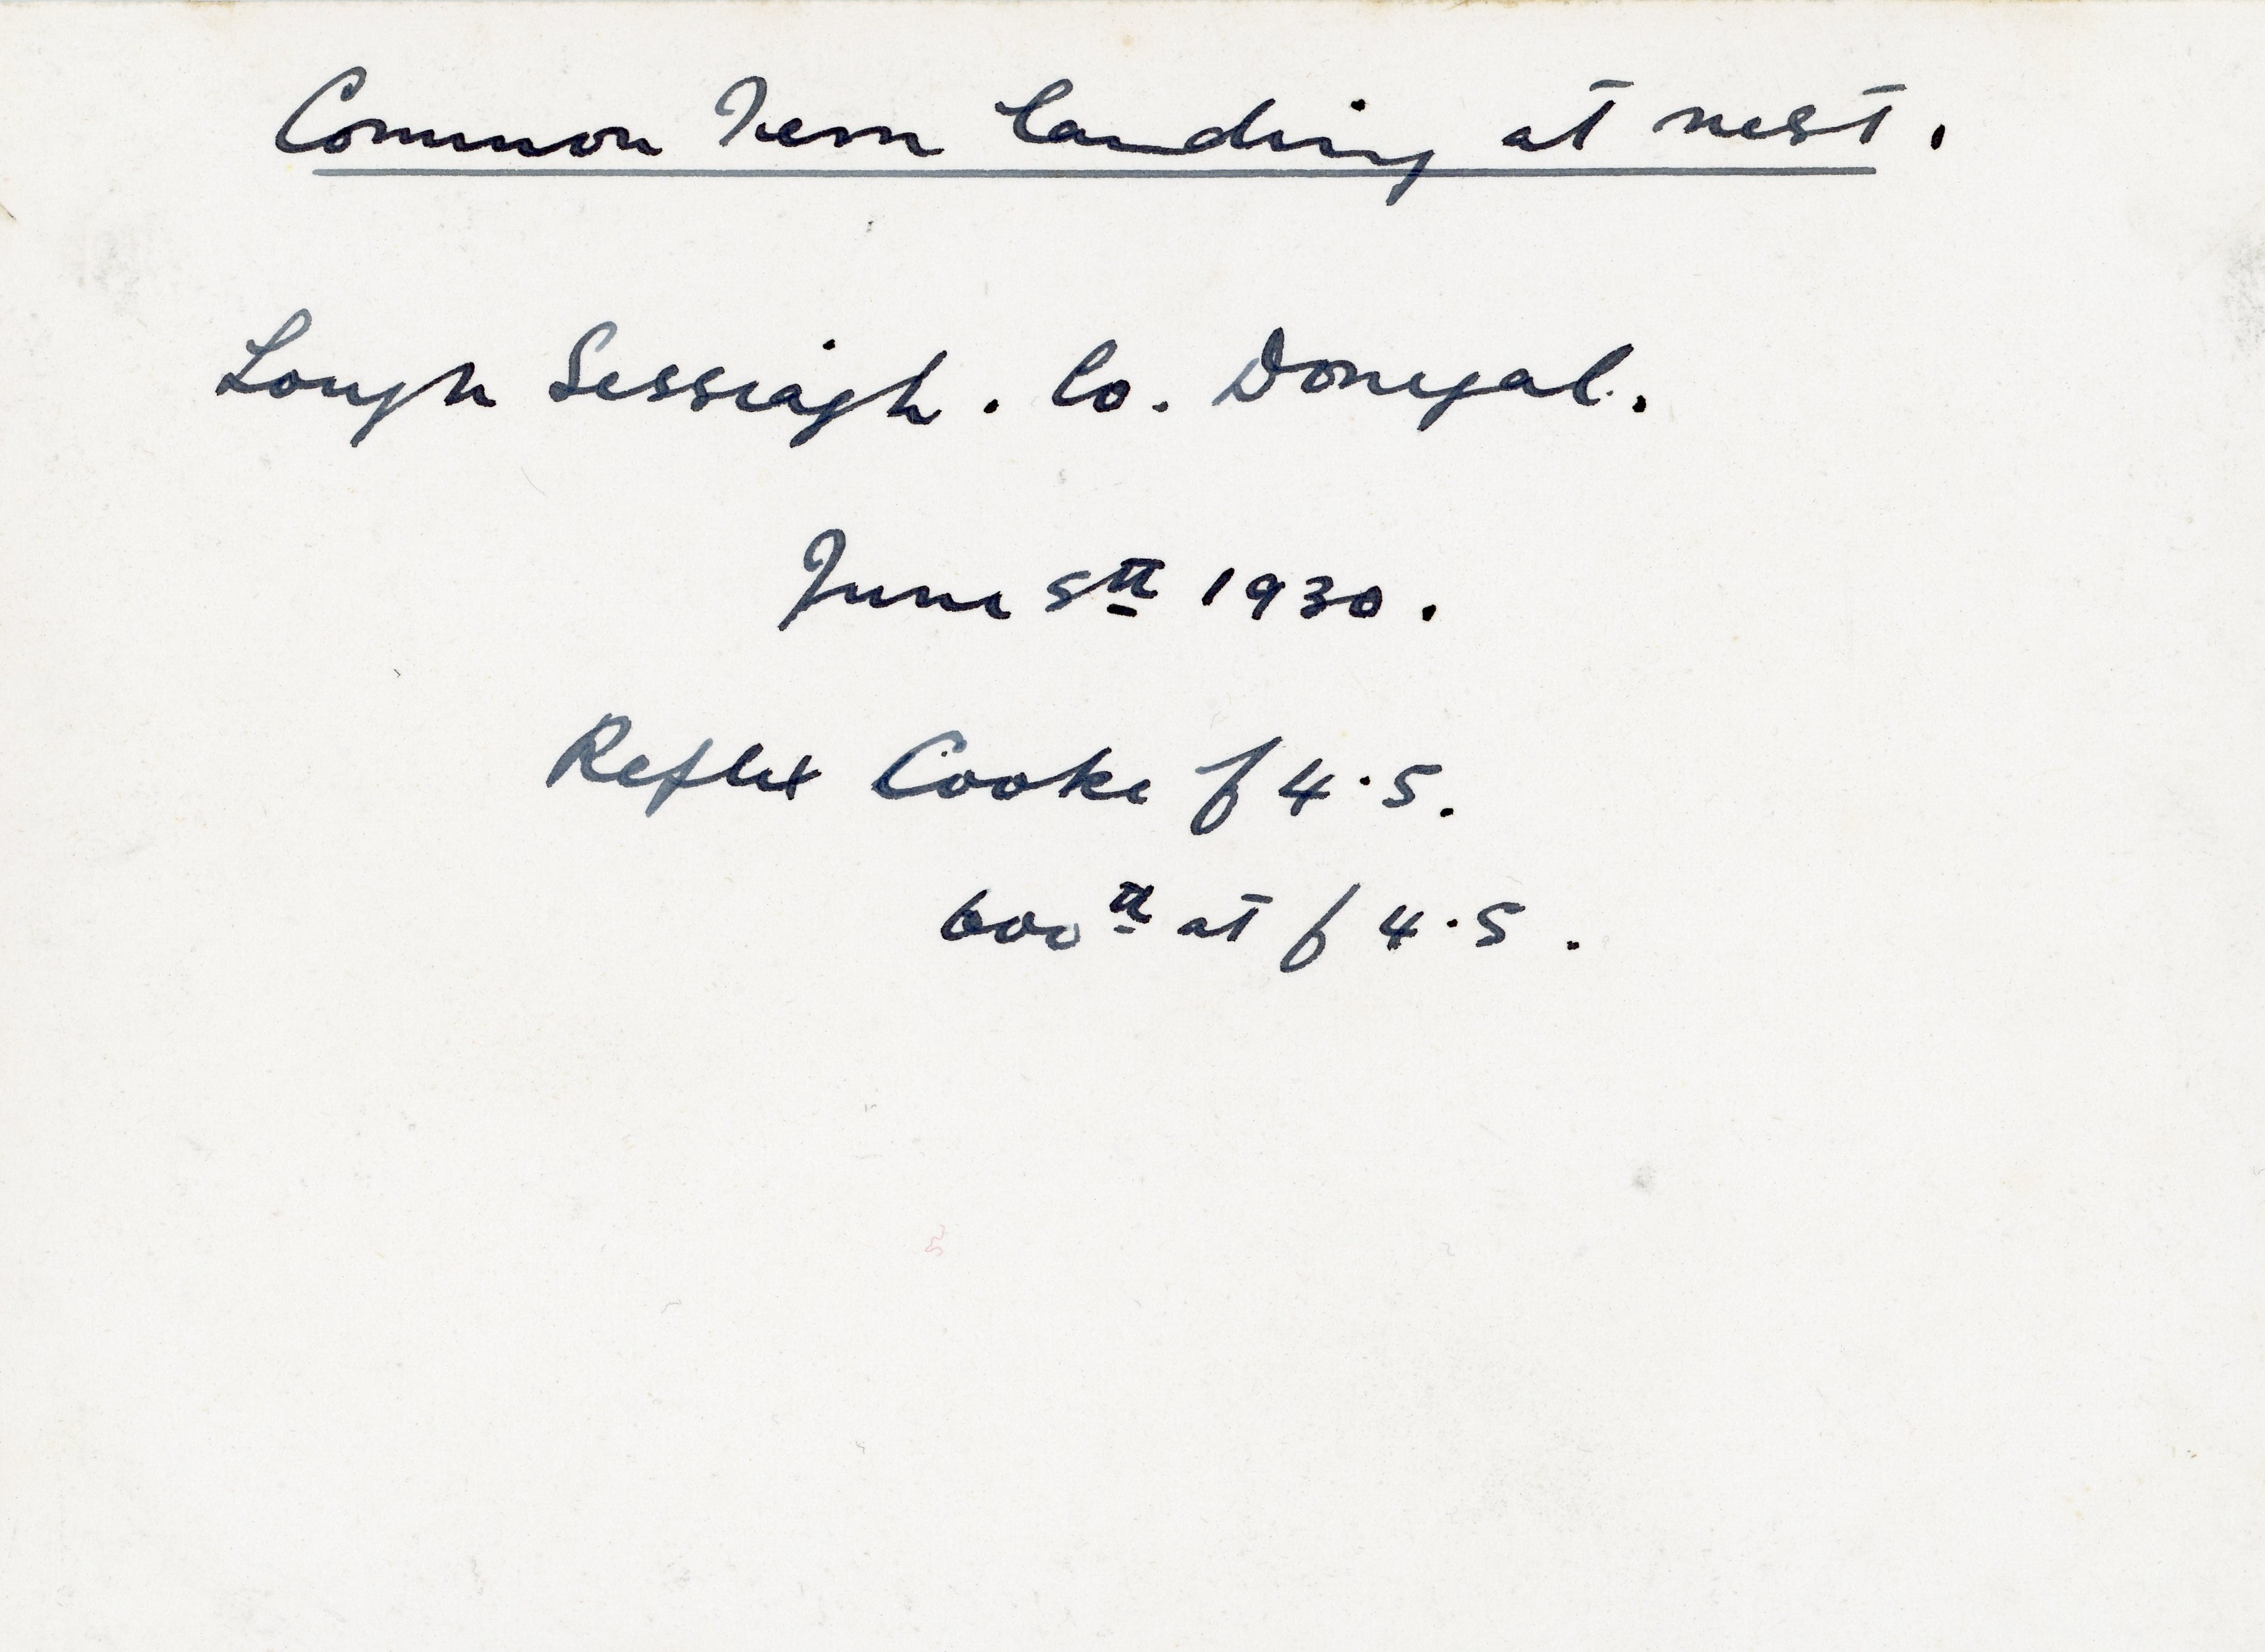 Common Tern landing at nest.
Lough Sessiagh. Co. Donegal.
June 5th 1930.
Reflex Cooke f 4.5.
600th at f 4.5.